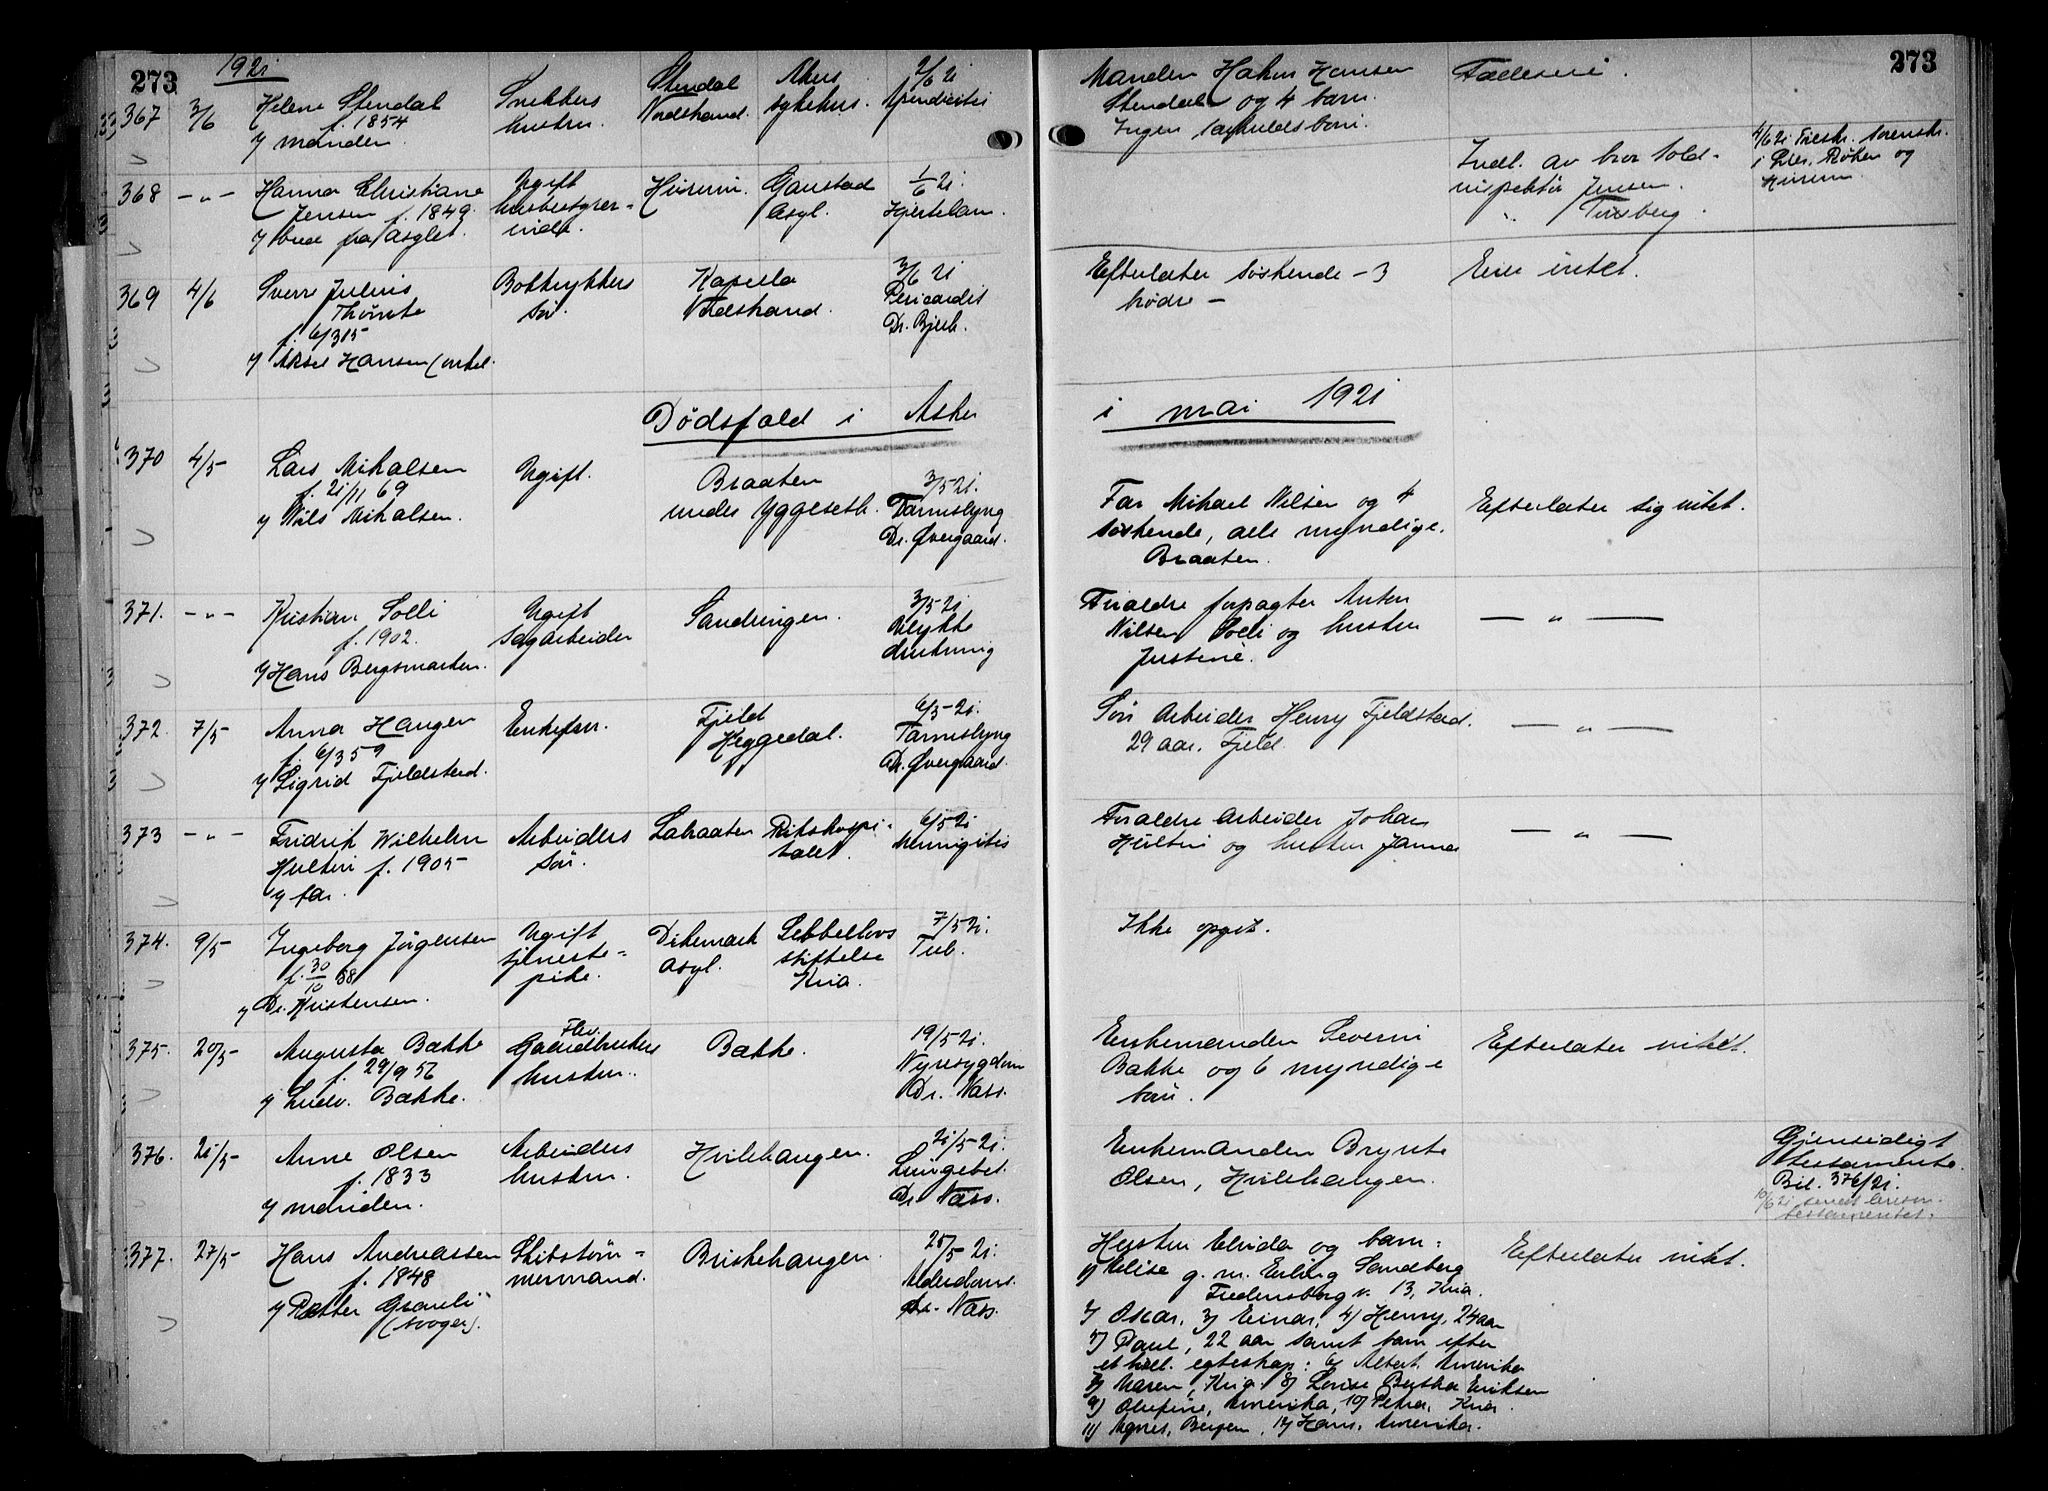 273
1921
273
367 3/6 Helene Stendal Snekkers Stendal Akers 2/6 21 Manden Hakon Hansen Fælleseie.
f. 1854 hustru. Nordstrand. sykehus. Apendicitis Stendal og 4 barn.
v/ manden. Ingen særkuldsbarn.
368 —„— Hanna Christiane Ugift Hurum. Gaustad 1/6 21. Indl. av bror Told- 4/6 21 Tilskr. sorenskr.
Jensen f. 1849. husbestyrer- Asyl. Hjertelam. inspektør Jensen. i Lier, Røken og
v/ bud fra Asylet. inde. Tønsberg. Hurum.
369 4/6 Sverre Julius Boktrykkers Kapella 3/6 21 Efterlater søskende – 3 Eier intet.
søn. Nordstrand. Pericardit brødre –
f. 6/3 15 Dr. Bjerk.
v/ Aksel Hansen (onkel.
Dødsfald i Asker i mai 1921
370 4/5 Lars Mikalsen Ugift. Braaten 3/5 21. Far Mikael Nilsen og 4 Efterlater sig intet.
f. 21/11 69 under Yggeseth. Tarmslyng søskende, alle myndige.
v/ Nils Mikalsen. Dr. Øvergaard. Braaten.
371. —„— Kristian Solli Ugift Sandungen. 3/5 21 Forældre forpagter Anton — „ —
f. 1902. Sagarbeider Ulykke Nilsen Solli og hustru
v/ Hans Bergsmarken. drukning Justine.
372. 7/5 Anna Haugen Enkefru. Fjeld 6/5 21. Søn Arbeider Henry Fjeldstad. — „ —
f. 6/3 59 Heggedal. Tarmslyng 29 aar. Fjeld.
v/ Sigrid Fjeldstad. Dr. Øvergaard.
373 —„— Fridrik Wilhelm Arbeiders Labraaten Rikshospi- 6/5 21 Forældre Arbeider Johan — „ —
Hultin f. 1905 søn. talet. Meningitis Hultin og hustru Janna
v/ far.
374. 9/5 Ingeborg Jørgensen Ugift Dikemark Sebbelows 7/5 21. Ikke opgit.
f. 30/10 88 tjeneste- asyl. stiftelse Tub.
v/ Dr. Kristensen. pike. Kria.
375. 20/5 Augusta Bakke Fhv. Gaardbrukers Bakke. 19/5 21. Enkemanden Severin Efterlater intet.
f. 29/9 56 hustru. Nyresygdom Bakke og 6 myndige
v/ Ludv. Bakke. Dr. Næss. barn.
376. 21/5 Anne Olsen Arbeiders Hvilehaugen. 21/5 21. Enkemanden Brynte Gjensidigt
f. 1833 hustru. Lungebet. Olsen, Hvilehaugen. testamente.
v/ manden. Dr. Næss. Bil. 376/21.
10/6 21
testamentet.
377. 27/5 Hans Andreassen Skibstøm- Briskehaugen. 25/5 21. Hustru Elvida og barn: Efterlater intet.
f. 1848 mermand. Alderdom. 1) Elise g. m. Erling Sandberg
v/ Petter Graneli Dr. Næss. Fredensborg v. 13, Kria.
(svoger). 2) Oscar, 3) Einar, 4) Henry, 24 aar
5) Paul, 22 aar samt barn efter
et tidl. egteskap: 6) Albert Amerika
7) Maren, Kria 8) Lovise Bertha Eriksen
9) Olufine, Amerika, 10) Petra, Kria.
11) Agnes, Bergen, 12) Hans, Amerika.